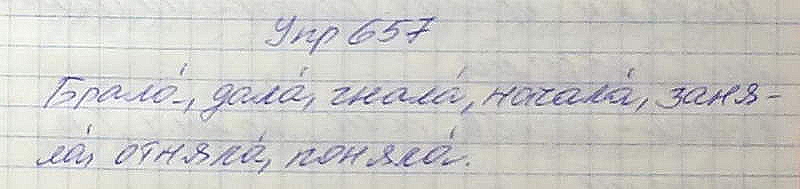 Упр 657
Брала́, дала́, гнала́, начала́, заня-
ла́, отняла́, поняла́.